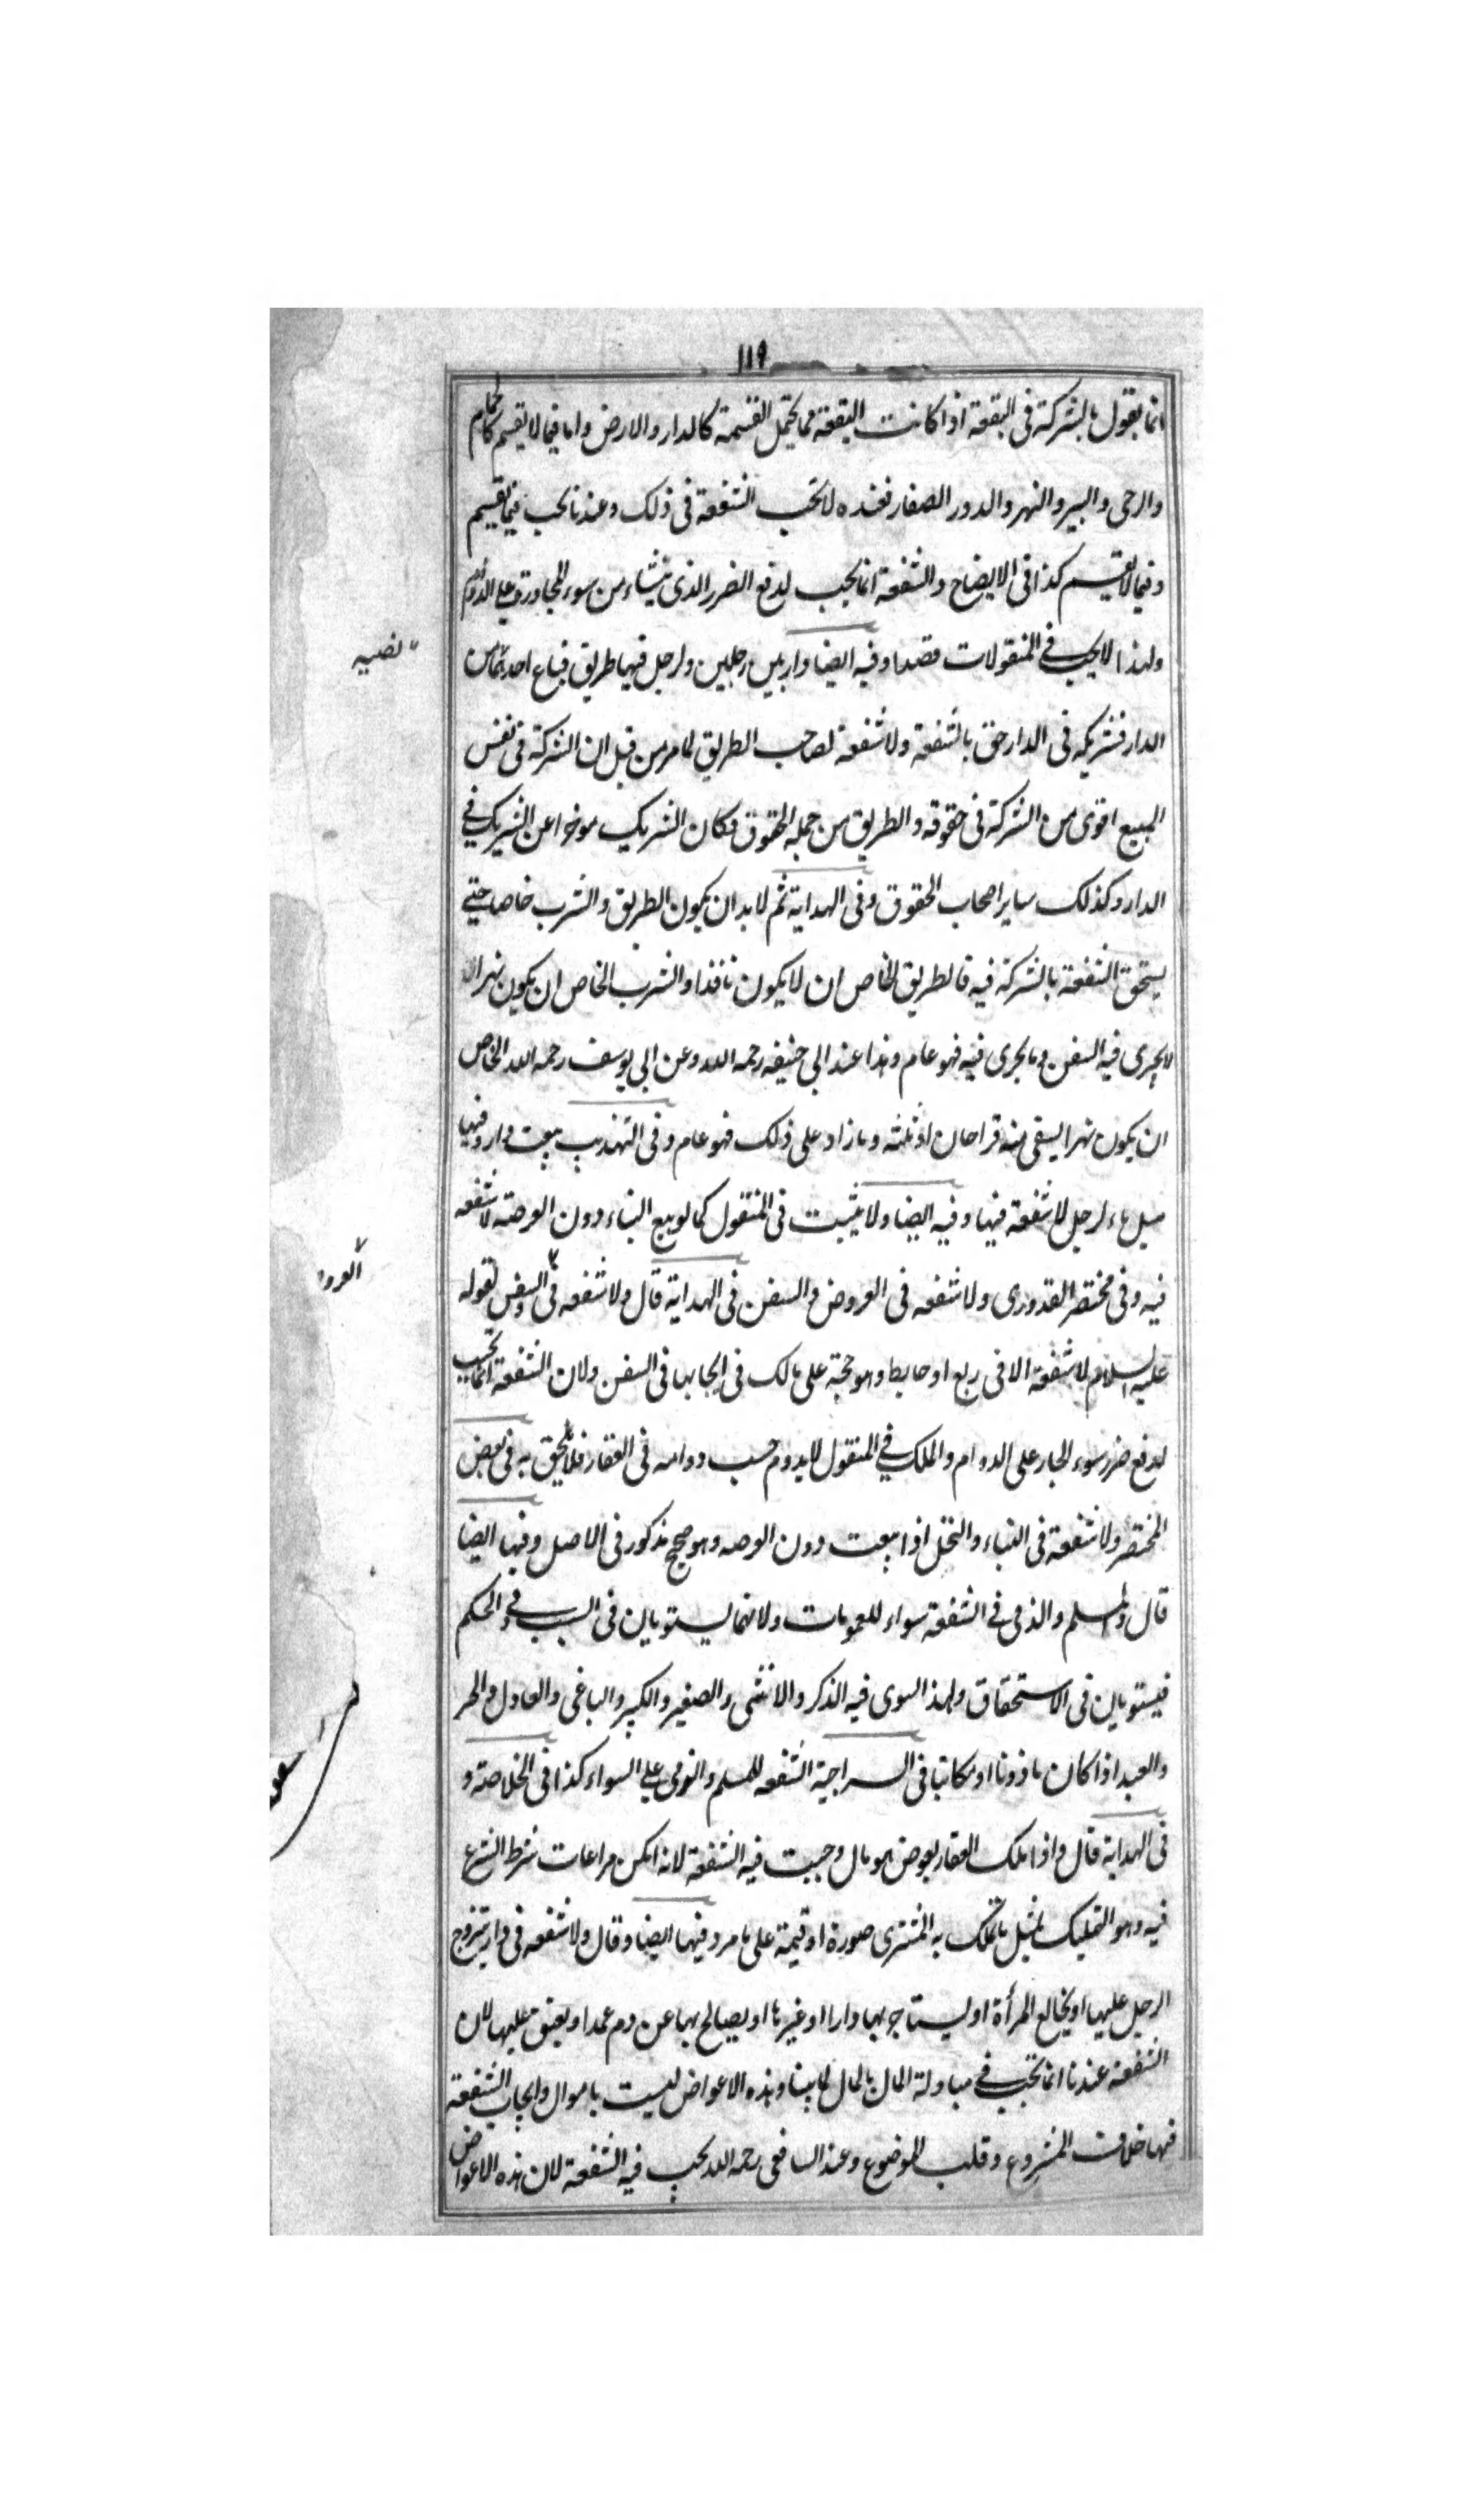 ١١٩
انما يقول بالشركة فى البقعة اذا كانت البقعة مما يحتمل القسمة كالدار والارض واما فيما لا يقسم كالحمام
والرحى والبير والنهر والدور الصغار فعنده لا تجب الشفعة فى ذلك وعندنا تجب فيما يقسم
وفيما لا يقسم كذا فى الايضاح والشفعة انما تجب لدفع الضرر الذى ينشاء من سوء المجاورة على الدوام
ولهذا لا تجب فى المنقولات قصدا وفيه ايضا دار بين رجلين ولرجل فيها طريق فباع احدهما من
نصيبه
الدار فشريكه فى الدار حق بالشفعة ولا شفعة لصاحب الطريق لما مر من قبل ان الشركة فى نفس
المبيع اقوى من الشركة فى حقوقه والطريق من جملة الحقوق فكان الشريك موخرا عن الشريك فى
الدار وكذلك ساير اصحاب الحقوق وفى الهداية ثم لا بد ان يكون الطريق والشرب خاصا حتى
يستحق الشفعة بالشركة فيه فالطريق الخاص ان لا يكون نافذا والشرب الخاص ان يكون نهرا
لا يجرى فيه السفن وما يجرى فيه فهو عام وهذا عند ابى حنيفه رحمه الله وعن ابى يوسف رحمه الله الخاص
ان يكون نهرا يسقى منه قراحان او ثلثه وما زاد على ذلك فهو عام وفى التهذيب بيعت دار وفيها
مسيل ماء لرجل لا شفعة فيها وفيه ايضا ولا يثبت فى المنقول كما لو بيع البناء دون العرصة لا شفعه
فيه وفى مختصر القدورى ولا شفعه فى العروض والسفن فى الهداية قال ولا شفعه فى والسفن لقوله
العرو
عليه السلام لا شفعة الا فى ربع او حايط وهو حجة على مالك فى ايجابها فى السفن ولان الشفعة انما تجب
لدفع ضرر سوء الجار على الدوام والملك فى المنقول لا يدوم حسب دوامه فى العقار فلا يلحق به فى بعض
المختصر ولا شفعة فى البناء والنخل اذا بيعت دون العرصه وهو صحيح مذكور فى الاصل وفيها ايضا
قال والمسلم والذمى فى الشفعة سواء للعمومات ولانهما يستويان فى السبب والحكم
فيستويان فى الاستحقاق ولهذا يستوى فيه الذكر والانثى والصغير والكبير والباغى والعادل والحر
والعبد اذا كان ماذونا او مكاتبا فى السراجية الشفعه للمسلم والذمى على السواء كذا فى الخلاصة و
فى الهداية قال واذا ملك العقار بعوض هو مال وجبت فيه الشفعة لانه امكن مراعات شرط الشرع
فيه وهو التمليك بمثل ما تملك به المشترى صورة او قيمة على ما مر وفيها ايضا وقال ولا شفعه فى دار يتزوج
الرجل عليها او يخالع المرأة او يستاجر بها دارا او غيرها او يصالح بها عن دم عمد او يعتق عليها لان
الشفعة عندنا انما تجب فى مبادلة المال بالمال لما بينا وهذه الاعواض ليست باموال وايجاب الشفعة
فيها خلاف المشروع وقلب الموضوع وعند الشافعى رحمه الله تجب فيه الشفعة لان هذه الاعواض